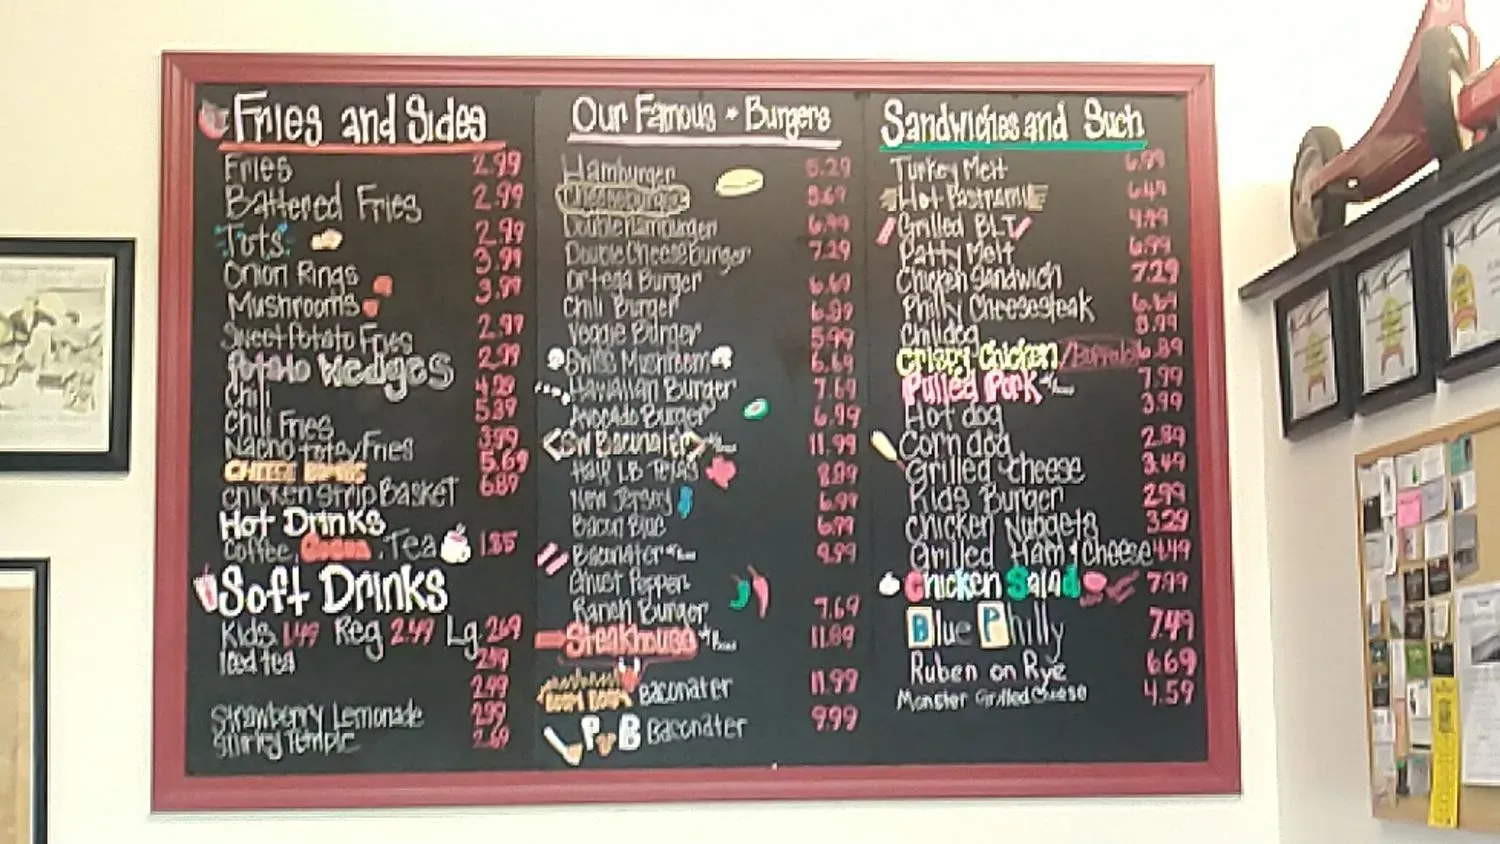 Fries and Sides
Fries 2.99
Battered Fries 2.99
Tots 2.99
Onion Rings 3.99
Mushrooms 3.99
Sweet Potato Fries 2.99
Potato Wedges 2.99
Chili 4.29
Chili Fries 5.39
Nacho tots/Fries 3.99
5.69
Chicken Strip Basket 6.89
Hot Drinks
Coffee, Cocoa, Tea 1.85
Soft Drinks
Kids 1.49 Reg 2.49 Lg 2.69
Iced tea 2.49
2.99
Strawberry Lemonade 2.99
Shirley Temple 2.69
Our Famous * Burgers
Hamburger 5.29
Cheeseburger 5.69
Double Hamburger 6.99
Double Cheese Burger 7.29
Ortega Burger 6.69
Chili Burger 6.89
Veggie Burger 5.99
Swiss Mushroom 6.69
Hawaiian Burger 7.69
Avocado Burger 6.99
SW Baconater 11.99
Half LB Texas 8.89
New Jersey 6.99
Bacon Blue 6.99
Baconater 9.99
Ghost Pepper
Ranch Burger 7.69
Steakhouse 11.89
Baconater 11.99
P B Baconater 9.99
Sandwiches and Such
Turkey Melt 6.99
Hot Pastrami 6.49
Grilled BLT 4.99
Patty Melt 6.99
Chicken Sandwich 7.29
Philly Cheesesteak 6.69
Chilidog 3.99
Crispy Chicken /Buffalo 6.89
Pulled Pork 7.99
Hot dog 3.99
Corn dog 2.89
Grilled Cheese 3.49
Kids Burger 2.99
Chicken Nuggets 3.29
Grilled Ham & Cheese 4.49
Chicken Salad 7.99
Blue Philly 7.49
Ruben on Rye 6.69
Monster Grilled Cheese 4.59